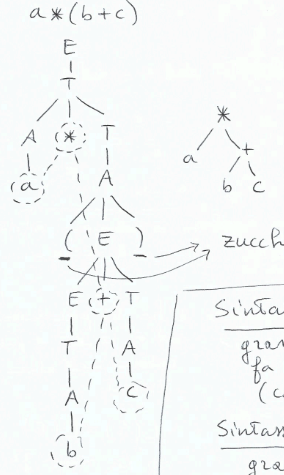 a * (b + c)
E
T
A * T
a A
( E )
E + T
T A
A c
b
*
a +
b c
zucch
Sinta
gra
fa
(c
Sintas
gra